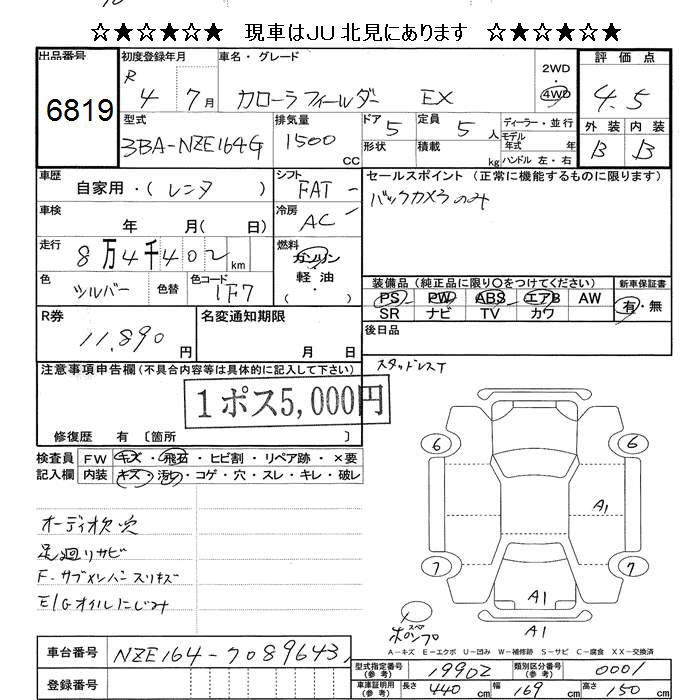 ☆★☆★☆★ 現車はJU 北見にあります ☆★☆★☆★
出品番号
6819
初度登録年月
R 4 7月
車名・グレード
カローラフィールダー EX
2WD
・
4WD
評価点
4.5
外装 内装
B B
型式
3BA-NZE164G
排気量
1500 CC
ドア 5
形状
定員 5 人
積載 kg
ディーラー・並行
モデル年式 年
ハンドル 左・右
車歴
自家用・(レンタ )
シフト
FAT
車検
年 月( 日)
冷房
AC
走行
8万4千402 km
燃料
ガソリン
軽油
色
シルバー
色替
色コード
1F7
セールスポイント (正常に機能するものに限ります)
バックカメラのみ
装備品 (純正品に限り〇をつけてください)
PS PW ABS エアB AW
SR ナビ TV カワ
新車保証書
有・無
後日品
スタッドレスT
R券
11,890円
名変通知期限
月 日
注意事項申告欄(不具合内容等は具体的に記入して下さい)
1ポス5,000円
修復歴 有 〔箇所 〕
検査員記入欄
FW キズ・飛石・ヒビ割・リペア跡・×要
内装 キズ・汚れ・コゲ・穴・スレ・キレ・破レ
オーディオ欠穴
足廻リサビ
F・サブメンバースリキズ
E/Gオイルにじみ
6 6
A1
7 7
A1
A1
スペ
ホンプロ
A－キズ E－エクボ U－凹み W－補修跡 S－サビ C－腐食 XX－交換済
車台番号
NZE164-7089643
登録番号
型式指定番号(参考)
19902
類別区分番号(参考)
0001
車庫証明用(参考)
長さ 440 cm
幅 169 cm
高さ 150 cm